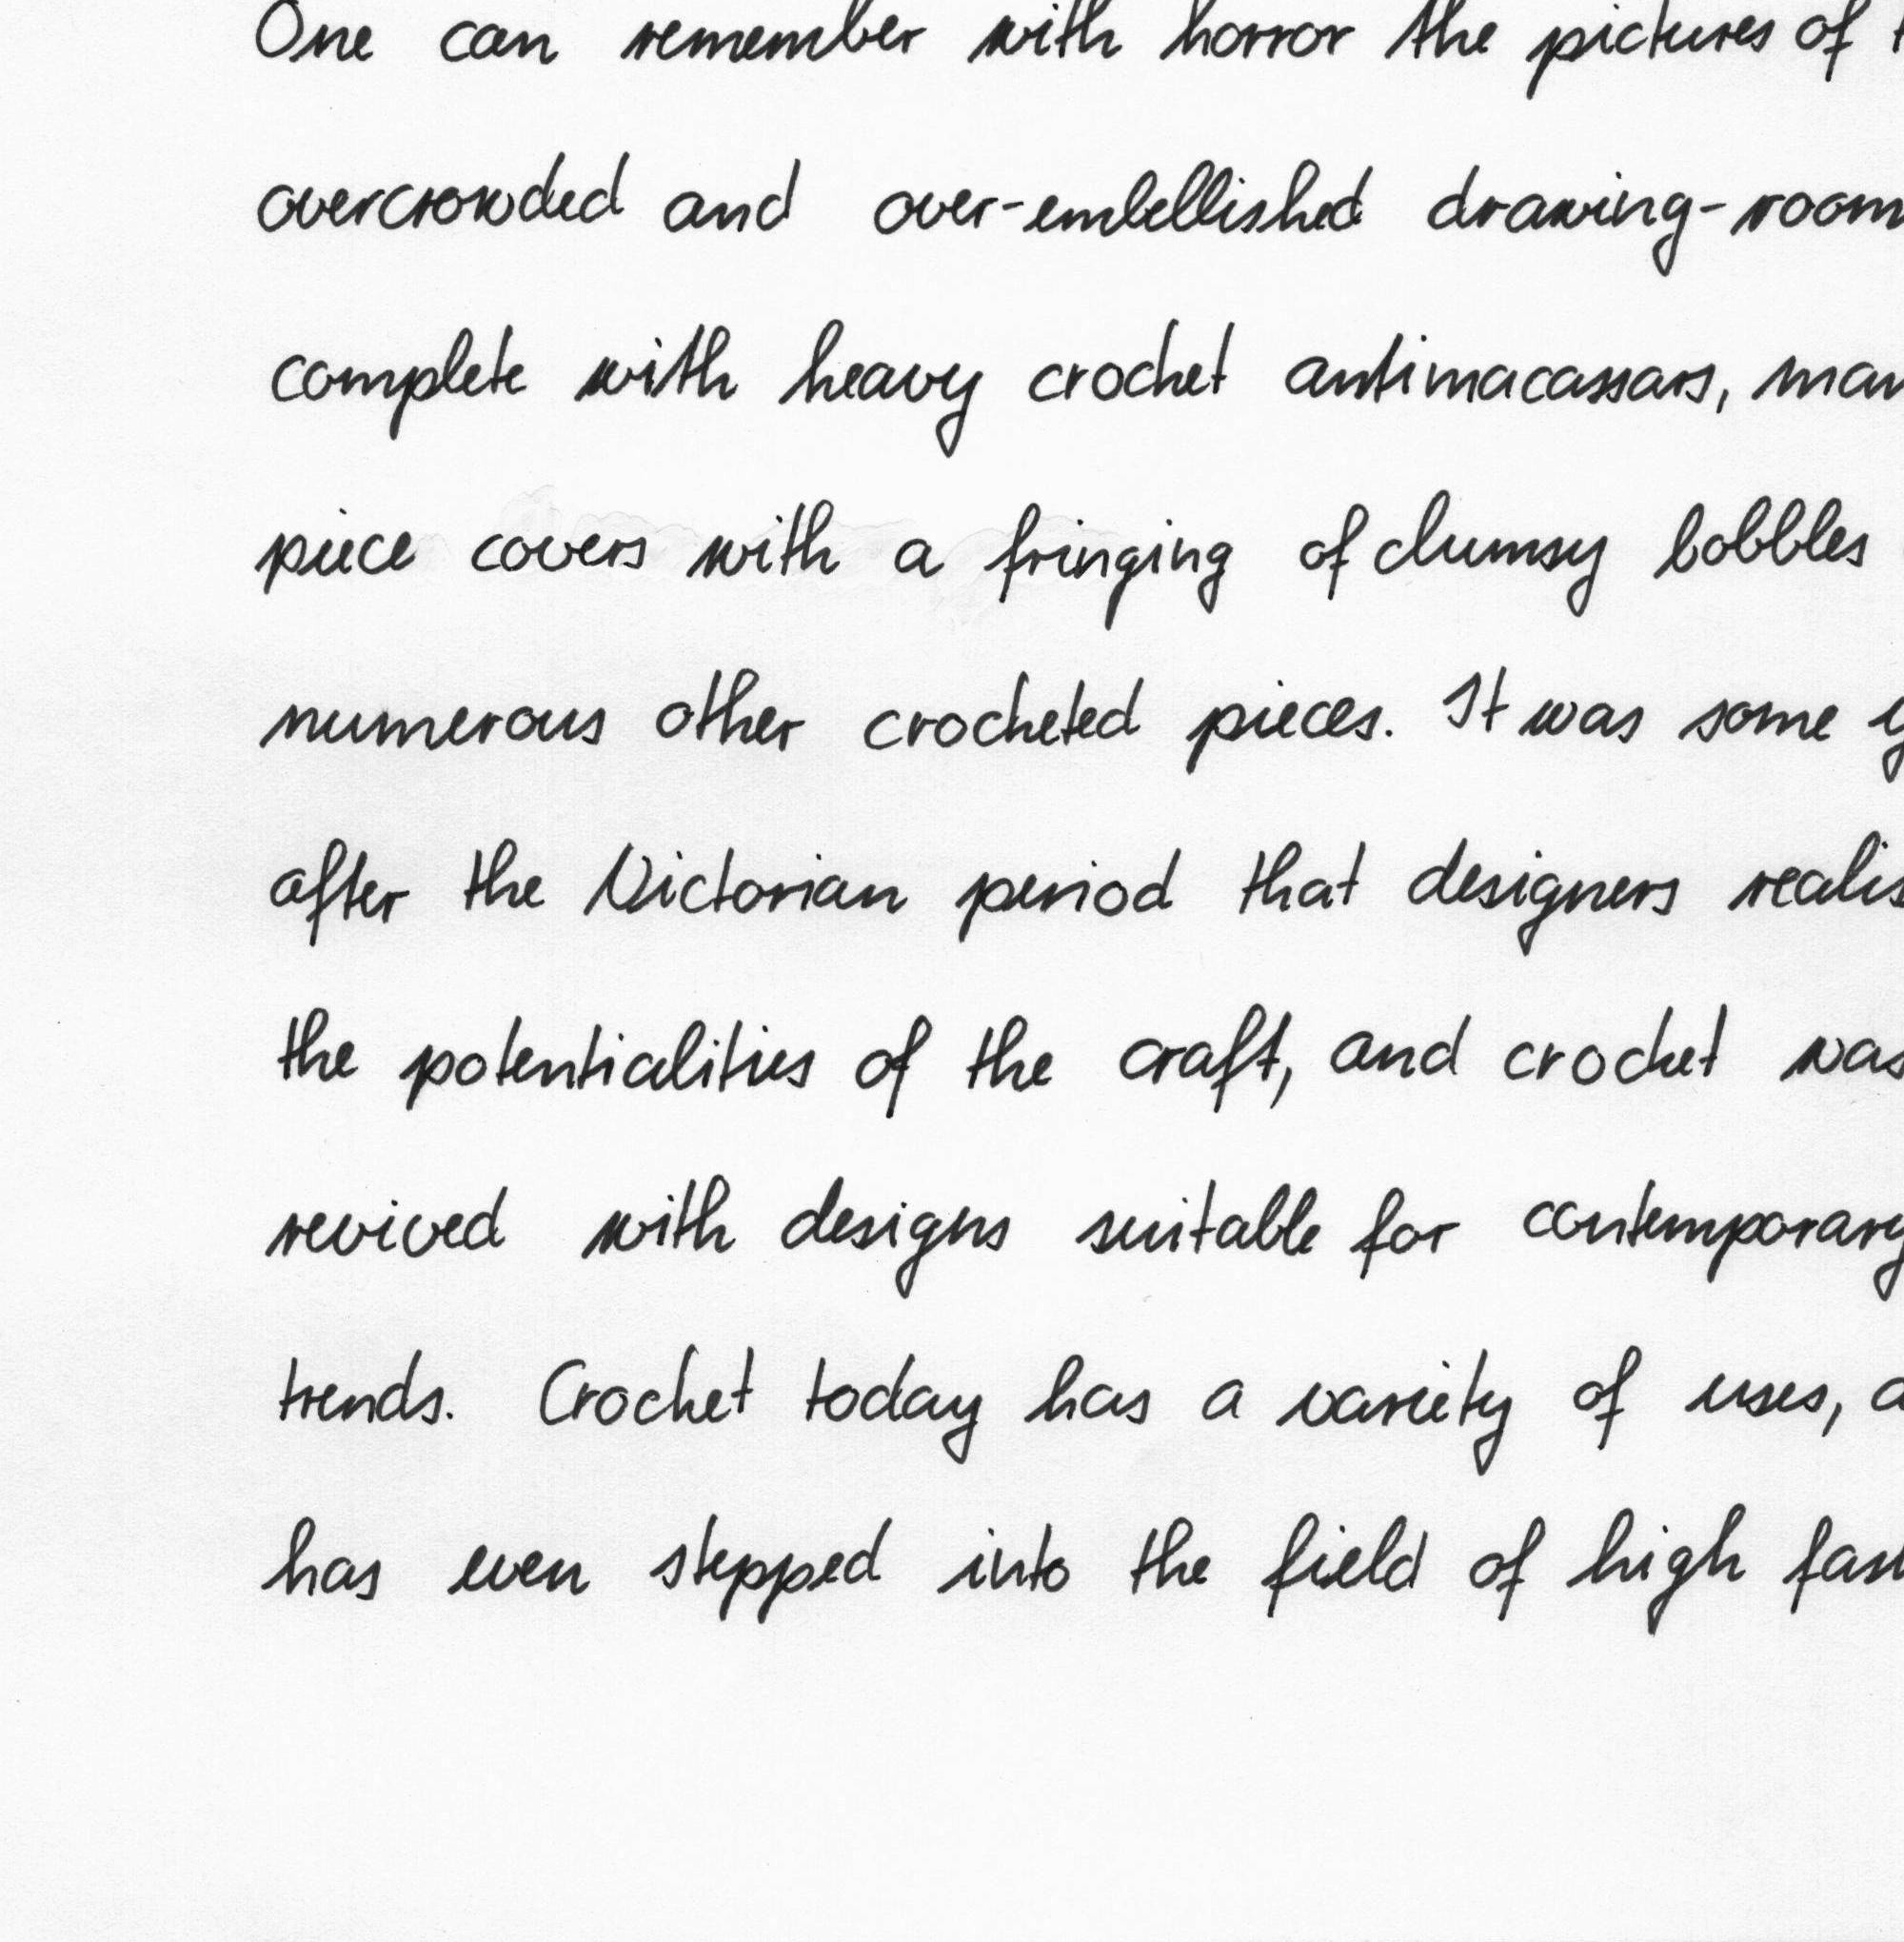 One can remember with horror the pictures of
overcrowded and over-embellished drawing-room
complete with heavy crochet antimacassars,
piece covers with a fringing of clumsy bobbles
numerous other crocheted pieces. It was some
after the Victorian period that designers
the potentialities of the craft, and crochet was
revived with designs suitable for contemporary
trends. Crochet today has a variety of uses,
has even stepped into the field of high